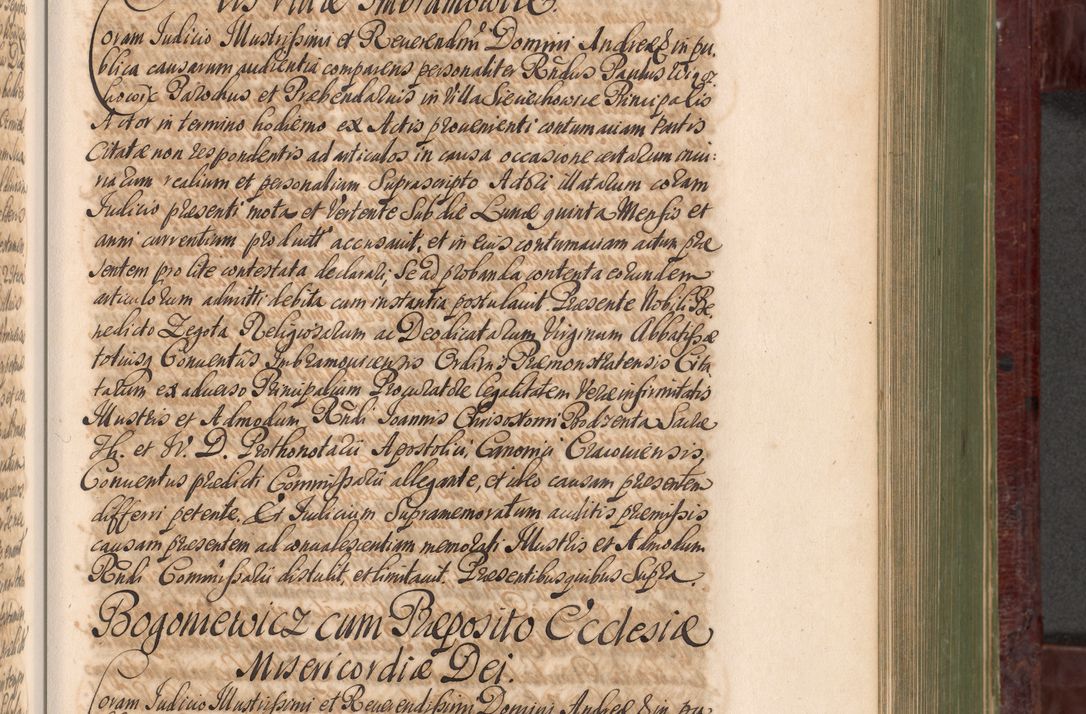 tis Villæ Imbramowice.
Coram Judicio Illustrissimi et Reverendmi Domini Andreæ &c in pu,
blica causarum audientia comparens personaliter Rndus Paulus
Parochus et Præbendarius in Villa Sieciechowice Principalis
Actor in termino hodierno ex Actis provenienti contumaciam Partis
Citatæ non respondentis ad articulos in causa occasione certarum iniu:
riarum realium et personalium Suprascripto Actori illatarum coram
Judicio præsenti mota et vertente sub die Lunæ quinta Mensis et
anni currentium productos accusavit, et in eius contumaciam actum præ
sentem pro lite contestata declarari, Se ad probanda contenta eorundem
articulorum admitti debita cum instantia postulavit. Præsente Nobili Be,
nedicto Zegota Religiosarum ac Deodicatarum Virginum Abbatissæ
totiusq Conventûs Imbramoviciensis Ordinis Præmonstratensis Cita
tarum ex adverso Principalium Procuratore legalitatem veræ infirmitatis
Illustris et Admodum Rndi Joannis Chrisostomi Bodzenta Sacræ
Th. et Ph. D. Prothonotarii Apostolici, Canonici Cracoviensis,
Conventus prædicti Commissarii allegante, et ideo causam præsentem
differri petente. Et Judicium Supramemoratum auditis præmissis
causam præsentem ad convalescentiam memorati Illustris et Admodum
Rndi Commissarii distulit, et limitavit. Præsentibus quibus Supra.
Bogoniewicz cum Præposito Ecclesiæ
Misericordiæ Dei.
Coram Judicio Illustrissimi et Reverendissimi Domini Andreæ &c in pu